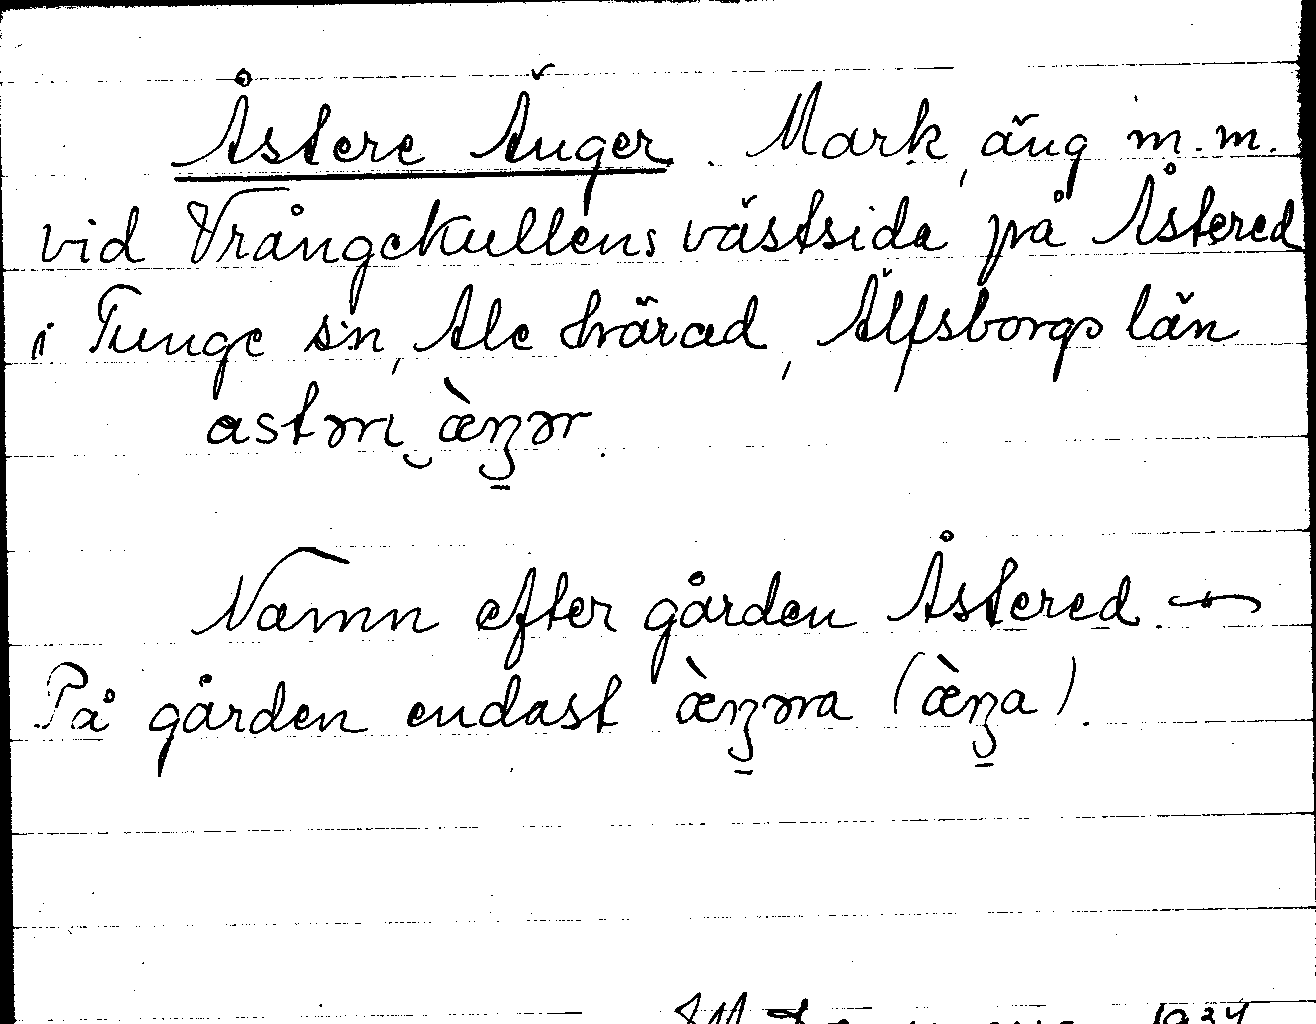 Åstere Änger. Mark, äng m.m.
vid Vrångekullens västsida på Åstered
i Tunge sn, Ale härad, Älfsborgs län
astəri æ̀ŋər.
Namn efter gården Åstered. —
På gården endast æ̀ŋəra (æ̀ŋa).
1934